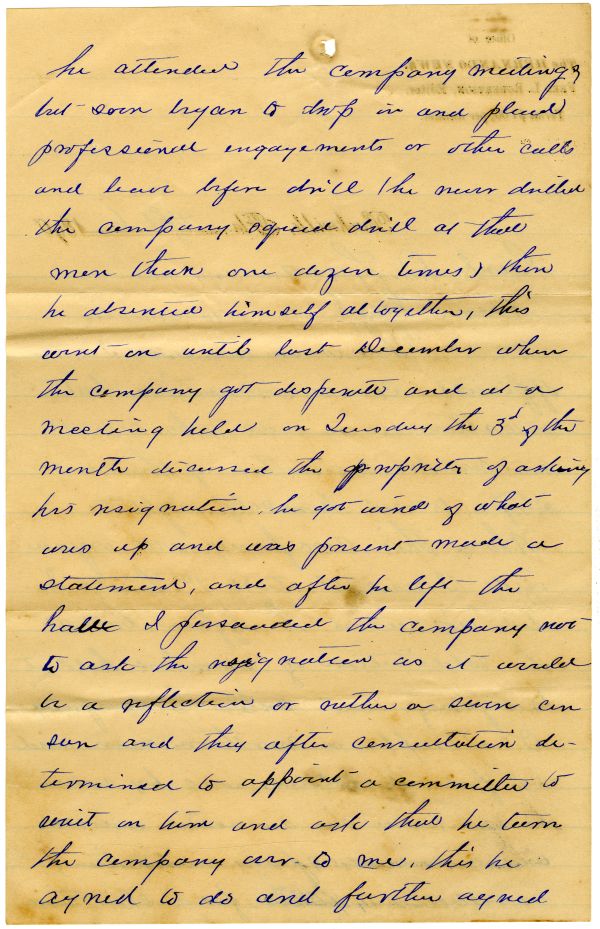 he attended the company meetings
but soon began to drop in and plead
professional engagements or other calls
and leave before drill (he never drilled
the company squad drill at that
more than one dozen times) then
he absented himself altogether, this
went on until last December when
the company got desperate and at a
meeting held on Tuesday the 3d of the
month discussed the propriety of asking
his resignation, he got wind of what
was up and was present made a
statement, and after he left the
hall I persuaded the company not
to ask the resignation as it would
be a reflection or rather a severe cen
sure and they after consultation de-
termined to appoint a committee to
wait on him and ask that he turn
the company over to me, this he
agreed to do and further agreed